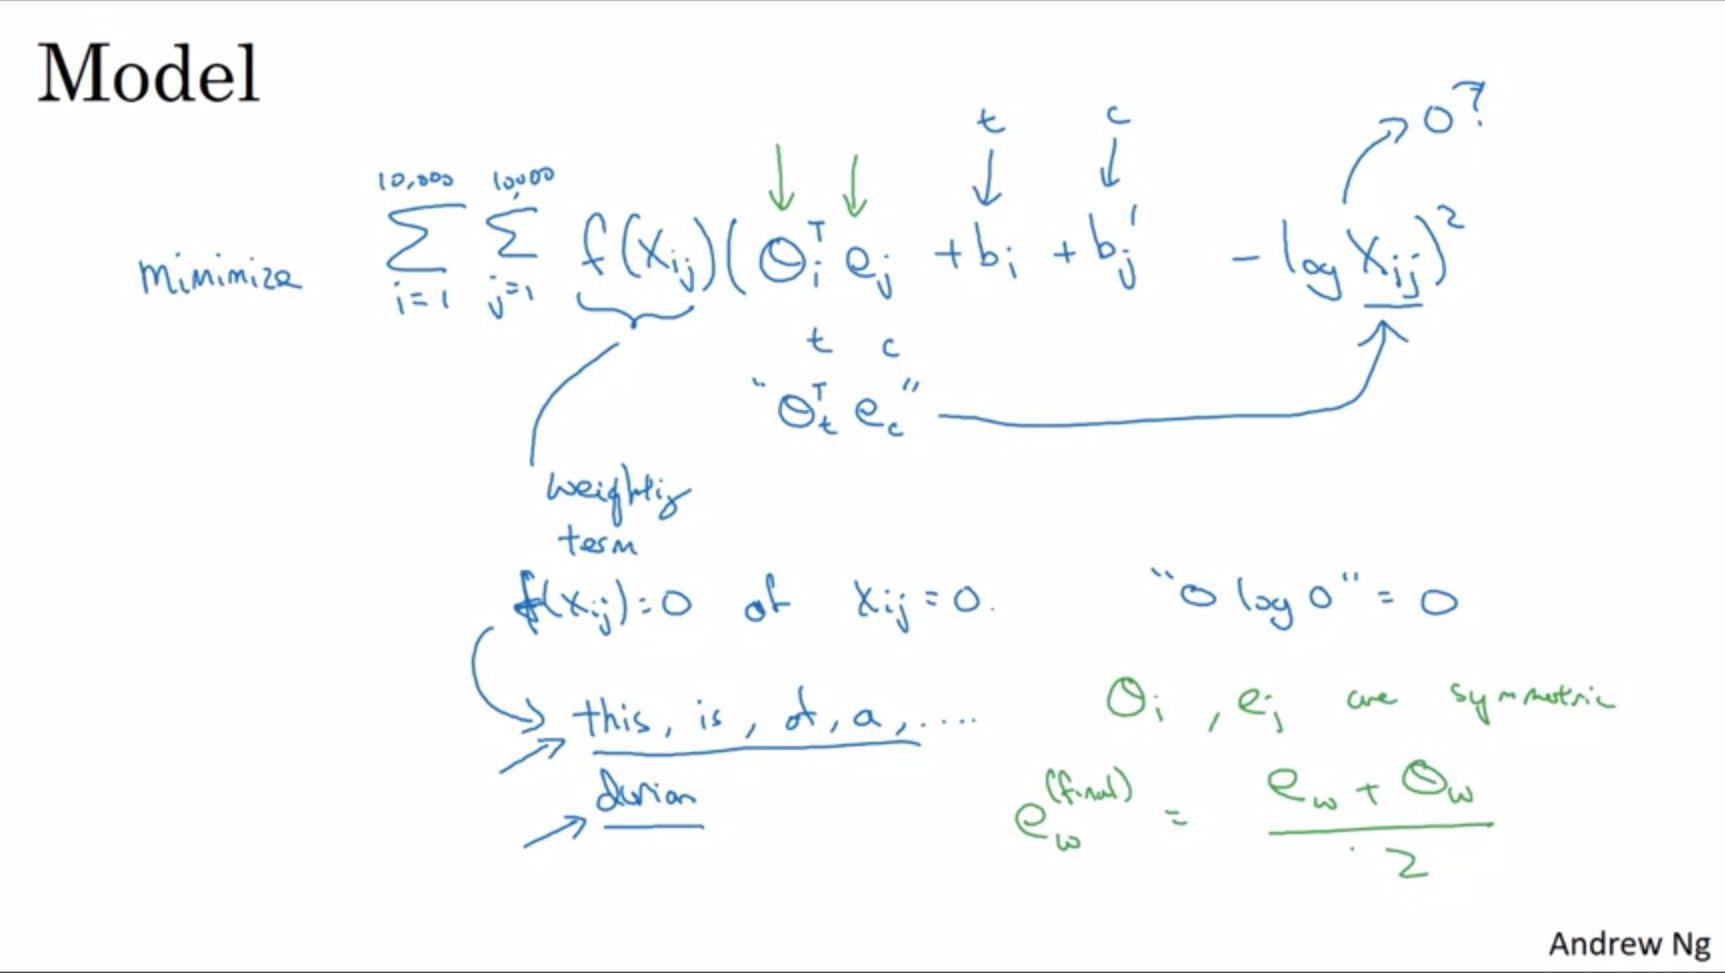 Model
t c 0?
minimize 10,000 ∑ i=1 10,000 ∑ j=1 f(Xij)(θiᵀ ej + bi + bj' - log Xij)²
t c
"θtᵀ ec"
weighting
term
f(xij)=0 if xij=0. "0 log 0" = 0
this, is, of, a, .... θi, ej are symmetric
durian
ew(final) = (ew + θw) / 2
Andrew Ng